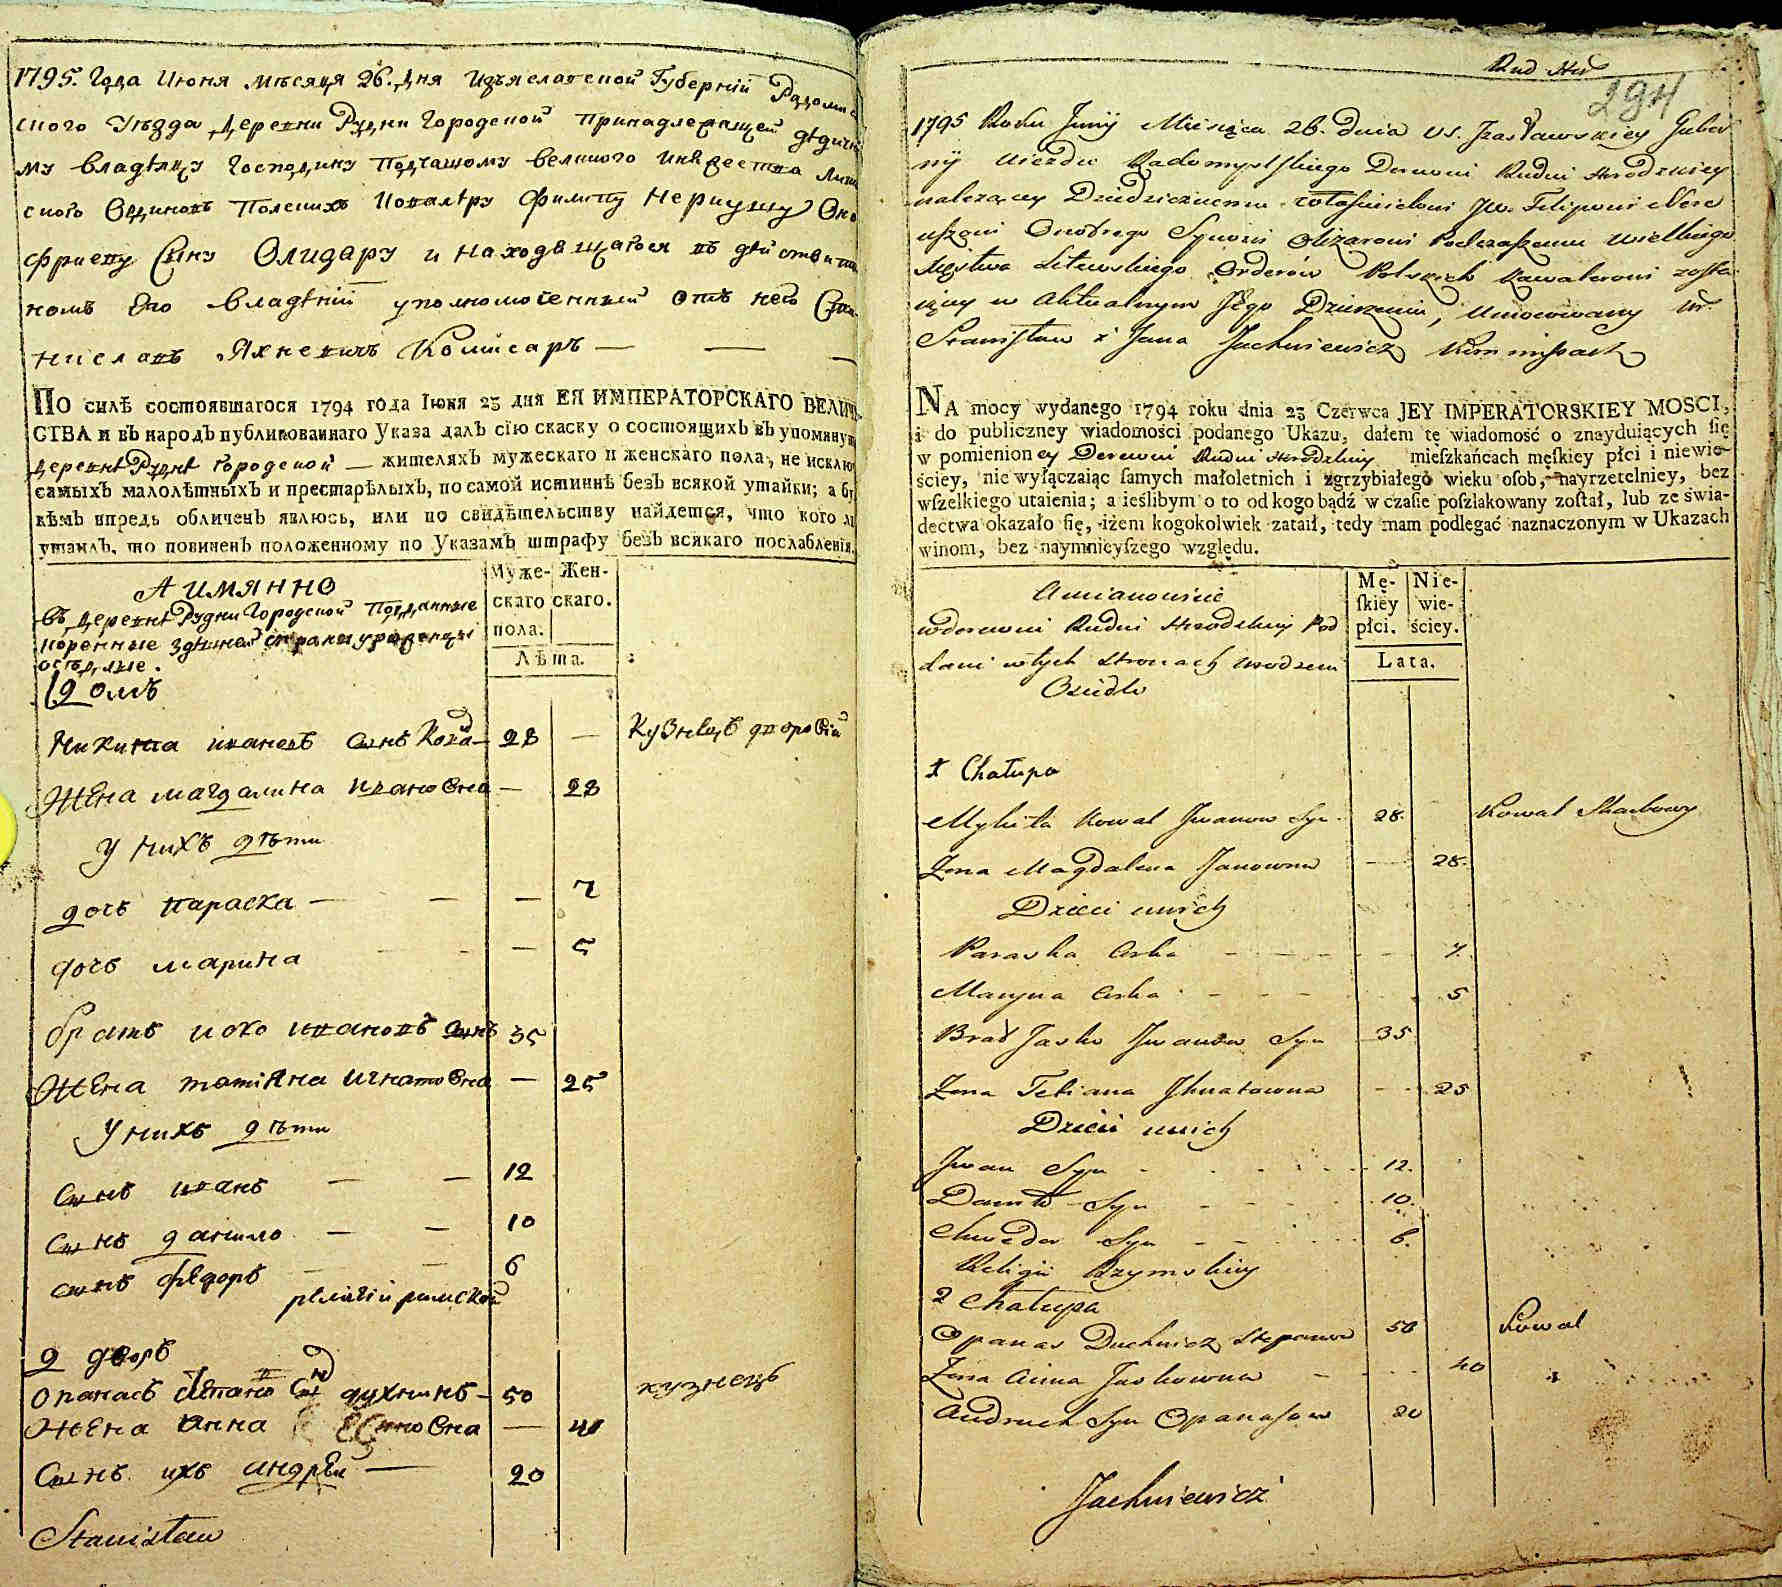 1795. Года Июня мѣсяця 26. Дня Изъяславской Губерніи Радомы
ского Уѣзда Деревни Рудни Городской принадлежащей дѣдичн
му владѣлцу Господину Подчашому великого Князства Лито
ского Ординовъ Полскихъ Кавалѣру Филипу Нериушу Оно
фриеву Сыну Олизару и находящагося въ дѣйствител
номъ Его владѣніи уполномоченный отъ него Ста
ниславъ Яхневичъ Комисаръ —
ПО силѣ состоявшагося 1794 года Іюня 23 дня ЕЯ ИМПЕРАТОРСКАГО ВЕЛИЧЕ
СТВА и въ народъ публикованнаго Указа далъ сію скаску о состоящихъ въ упомянут
деревнѣ Руднѣ Городской — жителяхъ мужескаго и женскаго пола, не исклю
самыхъ малолѣтныхъ и престарѣлыхъ, по самой истиннѣ безъ всякой утайки; а бу
кѣмъ впредь обличенъ явлюсь, или по свидѣтельству найдется, что кого ли
утаилъ, то повиненъ положенному по Указамъ штрафу безъ всякаго послабленія.
А ИМЯННО
Муже- Жен-
скаго скаго.
пола.
Лѣта.
въ деревнѣ Рудни Городской Подданные
коренные здѣшней страни уроженцы
осѣдлые.
1 домъ
Никита ивановъ сынъ Ковал — 28 — Кузнецъ дворовій
Жена магдалина ивановна — 28
у нихъ дѣти
дочь параска — — — 7
дочь марина — 5
братъ иско ивановъ сынъ 35
Жена татіяна игнатовна — 25
У нихъ дѣти
сынъ иванъ — — 12
сынъ данило — — 10
сынъ федоръ — — 6
религіи римской
2 дворъ
опанасъ степановъ сын духнычъ — 50 кузнецъ
Жена анна — 40
Сынъ ихъ андрей — 20
Stanisław
Rud Hor
294
1795 Roku Junij Miesiąca 26. dnia v. s. Izasławskiey Guber
nij uiezdu Radomyslskiego Derewni Rudni Horodzkiey
należącey Dziedzicznemu włascicielowi Jw. Filipowi Nere
uszowi Onofrego Synowi Olizarowi Podczaszemu wielkiego
Xięstwa Litewskiego Orderów Polskich Kawalerowi zosta
iącey w Aktualnym Jego Dzierzeniu, Umocowany W.
Stanisław i Jana Jachniewicz Kommissarz
NA mocy wydanego 1794 roku dnia 23 Czerwca JEY IMPERATORSKIEY MOSCI,
i do publiczney wiadomości podanego Ukazu, dałem tę wiadomość o znayduiących ſię
w pomienioney Derewni Rudni Horodzkiey mieſzkańcach męſkiey płci i niewie-
ściey, nie wyłączaiąc ſamych małoletnich i zgrzybiałego wieku oſob, nayrzetelniey, bez
wſzelkiego utaienia; a ieślibym o to od kogo bądź w czaſie poſzlakowany zoſtał, lub ze świa-
dectwa okazało ſię, iżem kogokolwiek zataił, tedy mam podlegać naznaczonym w Ukazach
winom, bez naymnieyſzego względu.
Amianowicie
Mę- Nie-
ſkiey wie-
płci. ściey.
Lata.
wderewni Rudni Horodzkiey Pod
dani wtych stronach urodzeni
Osiedli
1 Chałupa
Mykita Kowal Jwanow Syn 28. Kowal Skarbowy
Żona Magdalena Janowna — 28.
Dzieci unich
Paraska Corka — 7.
Maryna Corka — 5
Brat Jasko Jwanow Syn 35
Żona Tetiana Jhnatowna — 25
Dzieci unich
Jwan Syn — 12.
Daniło Syn — 10.
Chwedor Syn — 6.
Religii Rzymskiey
2 Chałupa
Opanas Duchnicz Stepanow 50 Kowal
Żona Anna Jaskowna — 40
Andruch Syn Opanasow 20
Jachniewicz